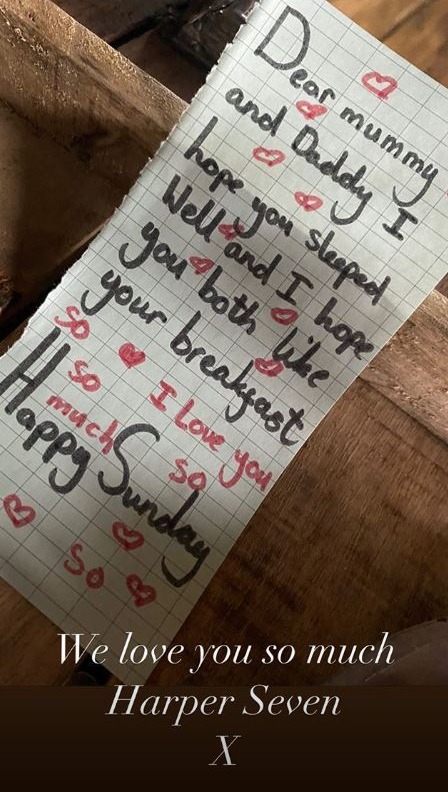 Dear mummy
and Daddy I
hope you sleeped
Well and I hope
you both like
your breakfast
so I Love you
so so
much
Happy Sunday
so
We love you so much
Harper Seven
X